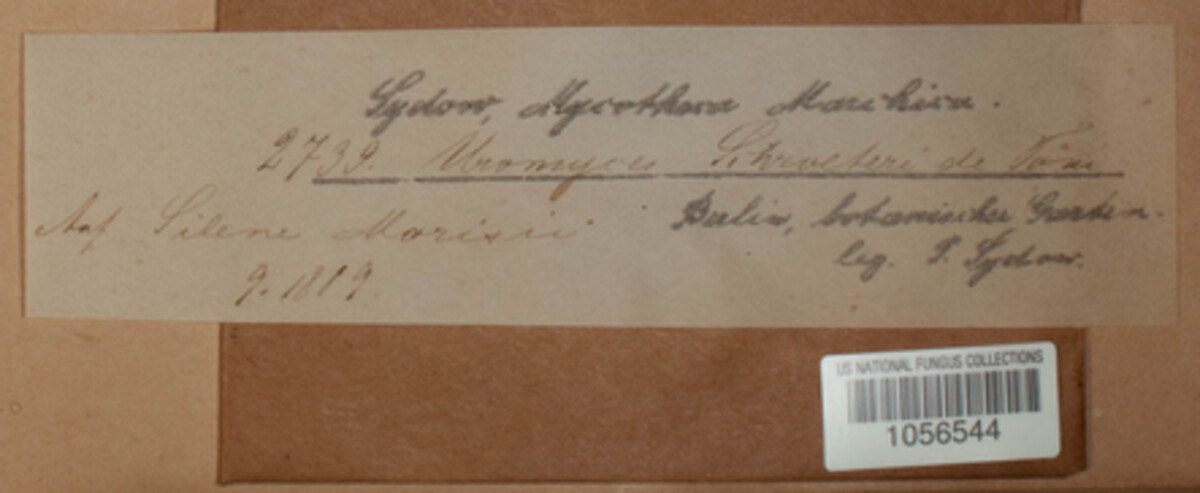 Sydow, Mycotheca Marchica.
2739. Uromyces Schroeteri de Toni
Auf Silene Morisii
Berlin, botanischer Garten.
leg. P. Sydow.
9. 1889.
US NATIONAL FUNGUS COLLECTIONS
1056544